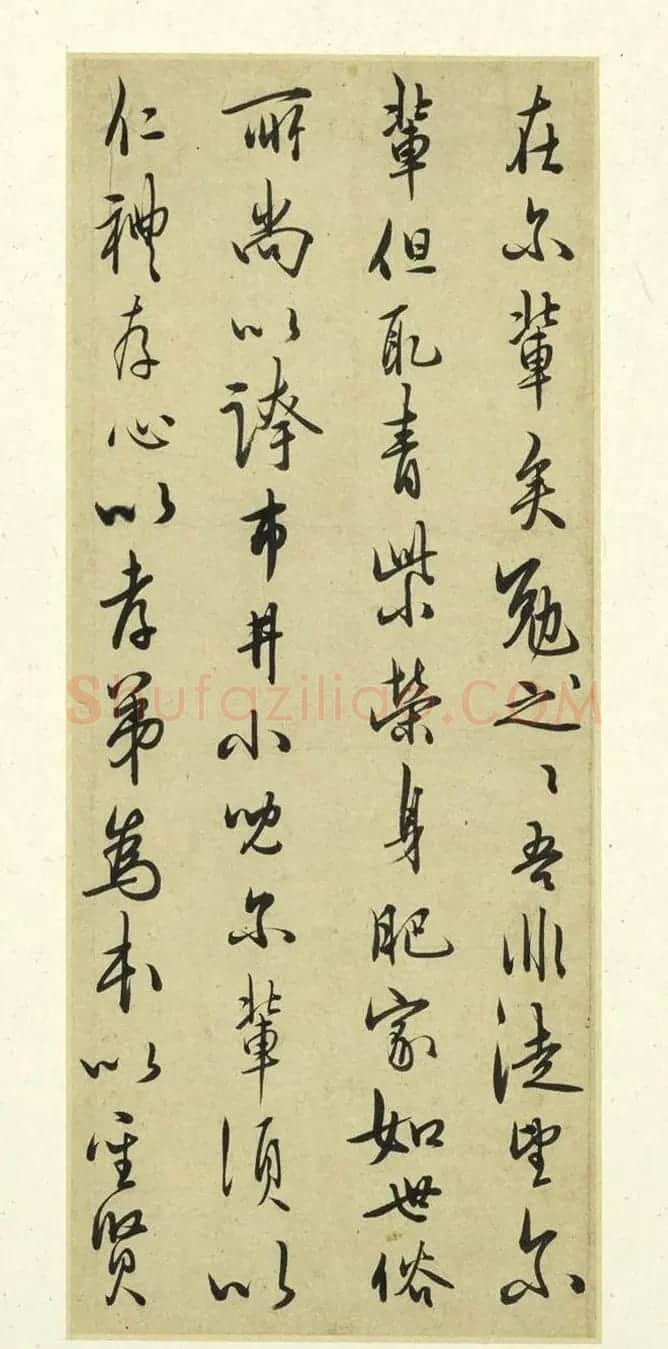 在尔輩矣勉之〻吾非徒望尔
輩但取青紫榮身肥家如世俗
所尚以誇市井小兒尔輩須以
仁禮存心以孝弟為本以聖賢
Shufaziliao.COM